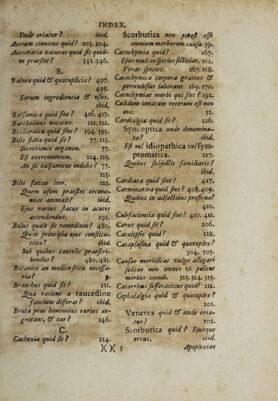 INDEX.
Unde oriatur? ibid.
Aurium tinnitus quid? 203. 204.
Autocratia naturae quid sit quidve praestet? 145. 146.
B.
Balnea quid & quotuplicia? 497. 498.
Eorum ingredientia & usus. ibid.
Balsamica quid sint? 416. 417.
Bartholinus notatur. 111. 212.
Bezoardica quid sint? 394. 395.
Bilis flava quid sit? 77. 123.
Secretionis organum. 77.
Est excrementum. 124. 125.
An sit balsamicae indolis? 77. 123.
Bilis flavae iter. 123.
Quem usum praestet oeconomiae animali? ibid.
Ejus varius status in acutis attendendus. 292.
Bolus quale sit remedium? 480.
Quae principia ejus constitutiva? ibid.
Sub quibus cautelis praescribendus? 480. 481.
Botanica an medico scitu necessaria?
Branchus quid sit? 211.
Qua ratione a raucedine faucium differat? ibid.
Bruta prae hominibus rarius aegrotant, & cur? 146.
C.
Cachexia quid sit? 214.
Scorbutica non potest esse omnium morborum causa. 39.
Cacochymia quid? 167.
Ejus mult. es species fictitiae. 161.
Verae species. 167. 168.
Cacochymica corpora gravius & periculosius laborant. 169. 170.
Cacochymiae morbi qui sint? 192.
Calidum innatum veterum est non ens. 52.
Cardialgia quid sit? 226.
Symptomatica
Cardiaca quid sint? 427.
Carminativa quid sint? 408. 409.
Quibus in affectibus prosint? 410.
Calefacientia quid sint? 410. 411.
Carus quid sit? 206.
Catalepsis quid? 218.
Cataplasma quid & quotuplex? 504. 505.
Causae morbificae vulgo allegari solitae non omnes vi pollent morbos ciendi. 312. 314. 315.
Catarrhus suffocativus quid? 212.
Cephalalgia quid & quotuplex? 201.
Venerea quid & unde oriatur? 202.
Scorbutica quid? Ejusque ortus. ibid.
)( )( 3 Apoplexiae